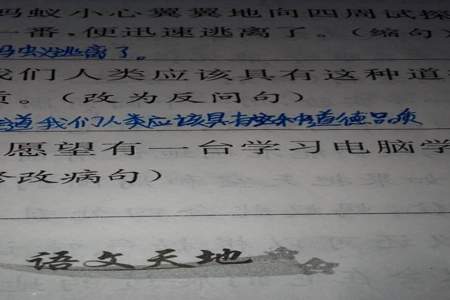 蚂蚁小心翼翼地向四周试探
一番,便迅速逃离了。(缩句)
蚂蚁逃离了。
我们人类应该具有这种道
质。(改为反问句)
道我们人类应该具有这种道德品质
愿望有一台学习电脑学
修改病句)
语文天地